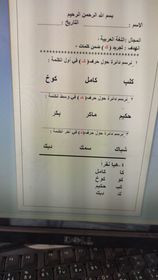 بسم الله الرحمن الرحيم
الاسم : التاريخ :
المجال : اللغة العربية :
الهدف : تجريد ( ك ) ضمن كلمات
١ نرسم دائرة حول حرف ( ك ) في أول الكلمة :
كلب كامل كوخ
٢ نرسم دائرة حول حرف ( ك ) في وسط الكلمة :
حكيم ماكر بكر
٣ نرسم دائرة حول حرف ( ك ) في آخر الكلمة :
شباك سمك ديك
٤ هيا نقرأ :
كا كامل
كو كوخ
كب حكيم
ك ديك